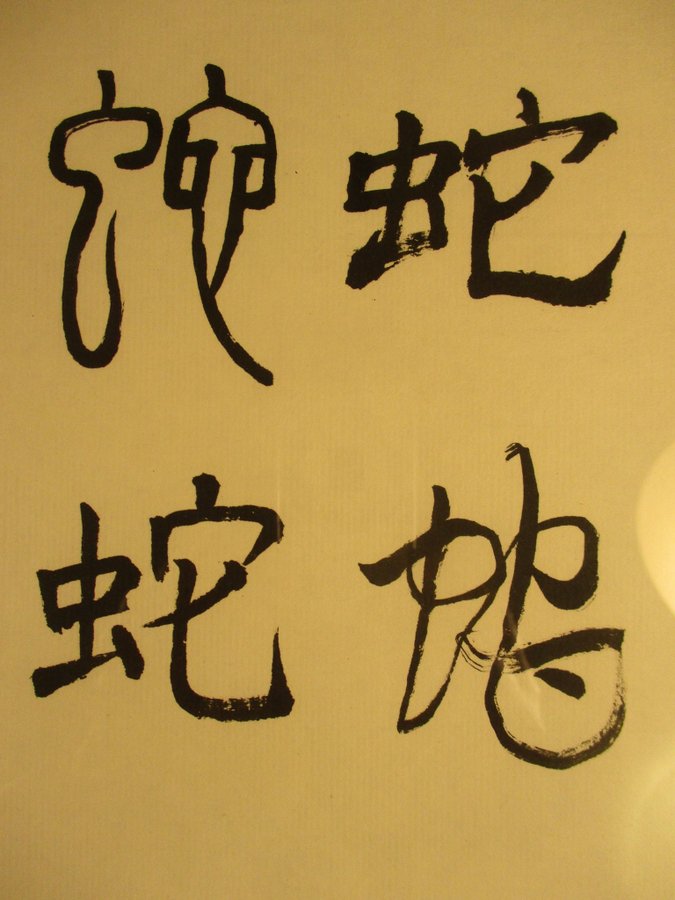 蛇蛇
蛇蛇